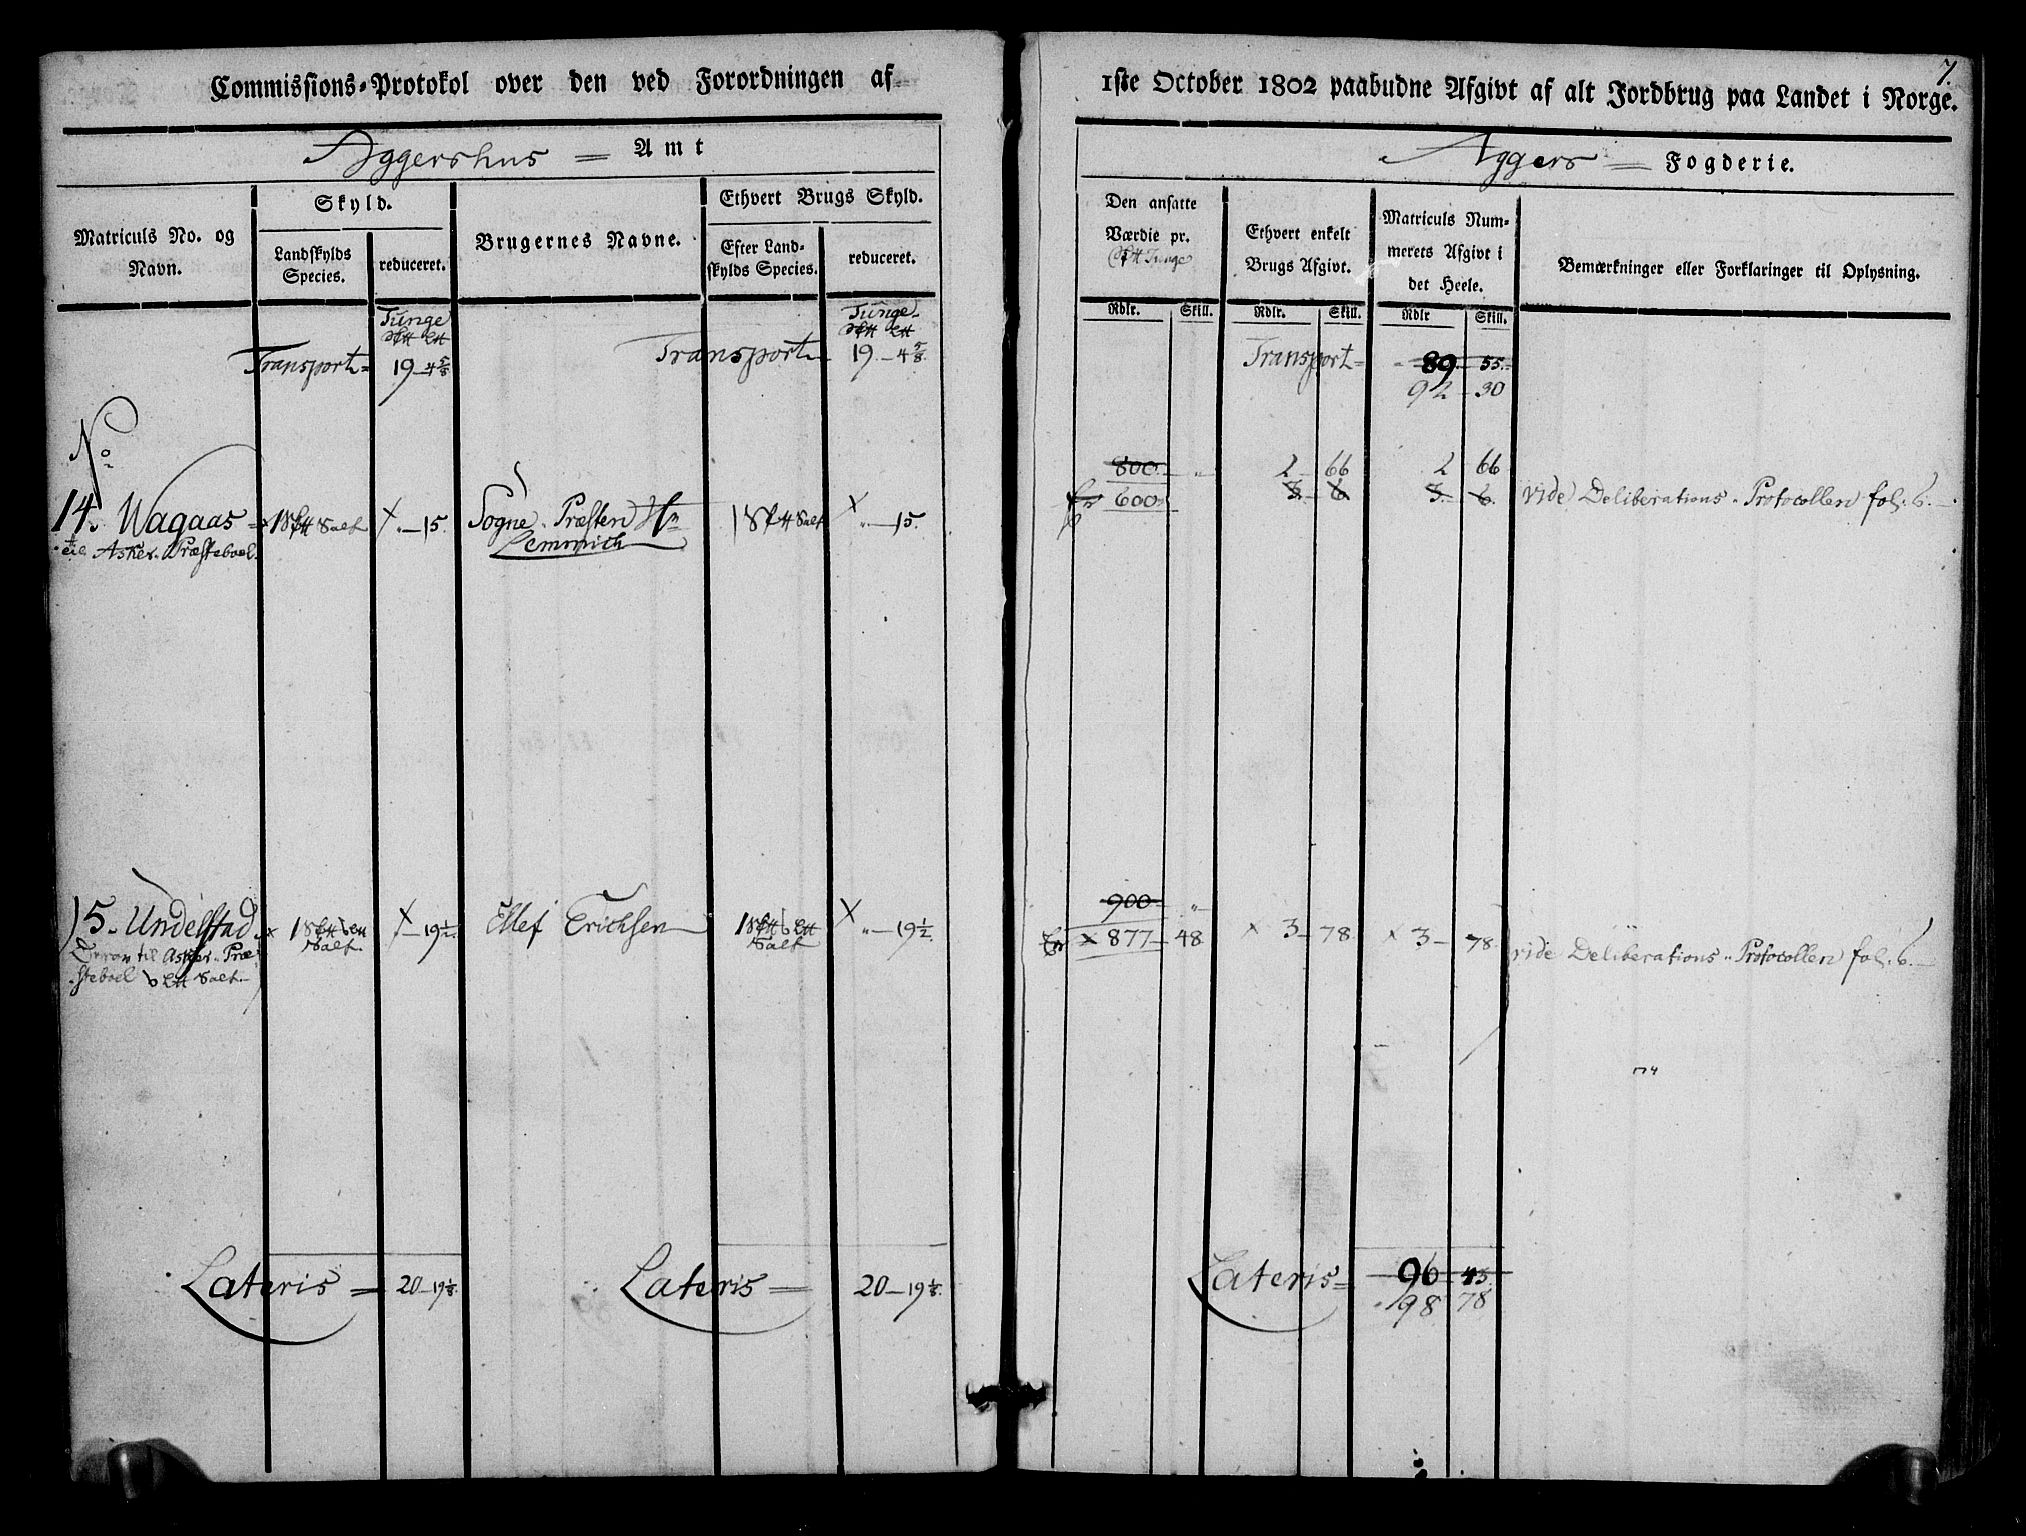 Commissions-Protokol over den ved Forordningen af
Aggershus = Amt
Matriculs No. og Navn.
Skyld.
Landskylds Species.
reduceret.
Brugernes Navne.
Ethvert Brugs Skyld.
Efter Land-
skylds Species.
reduceret.
Tunge
Transport = 19 – 4 5/8
Tunge
Transport 19 – 4 5/8
No
14. Wagaas 1 S℔ Salt × „ – 15. Sogne Præsten Hr 1 S℔ Salt × „ – 15.
til Asker Præsteboel. Lemmich
15. Undelstad × 1 S℔ 6 L℔ × – 19 1/2. Ellef Erichsen 1 S℔ 6 L℔ × „ – 19 1/2.
Salt. Salt
til Asker Præ-
steboel 6 L℔ Salt
Lateris = 20 – 19 1/8. Lateris = 20 – 19 1/8.
7.
1ste October 1802 paabudne Afgivt af alt Jordbrug paa Landet i Norge.
Aggers = Fogderie.
Den ansatte
Værdie pr.
S℔ Tunge
Ethvert enkelt
Brugs Afgivt.
Matriculs Num-
merets Afgivt i
det Heele.
Bemærkninger eller Forklaringer til Oplysning.
Rdlr. Skill. Rdlr. Skill. Rdlr Skill.
Transport = 89 – 55.
92 – 30
800 „ 2 – 66 2 66
600 3. – 6 3. – 6. vide Deliberations Protocollen fol. 6.
900 „
× 877 – 48. × 3 – 78. × 3 – 78. vide Deliberations Protocollen fol. 6.
Lateris = 96 – 43.
98 78